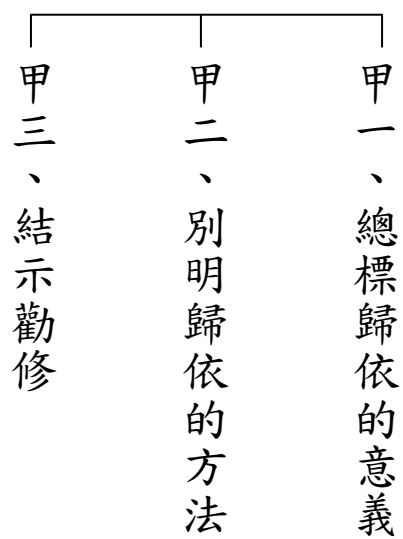 甲一、總標歸依的意義
甲二、別明歸依的方法
甲三、結示勸修